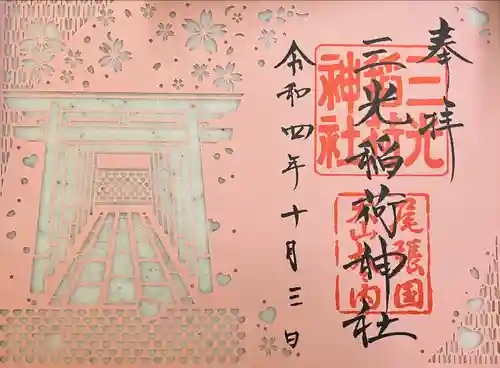 奉拝
三光稲荷神社
令和四年十月三日
三光
稲荷
神社
尾張国
犬山城内